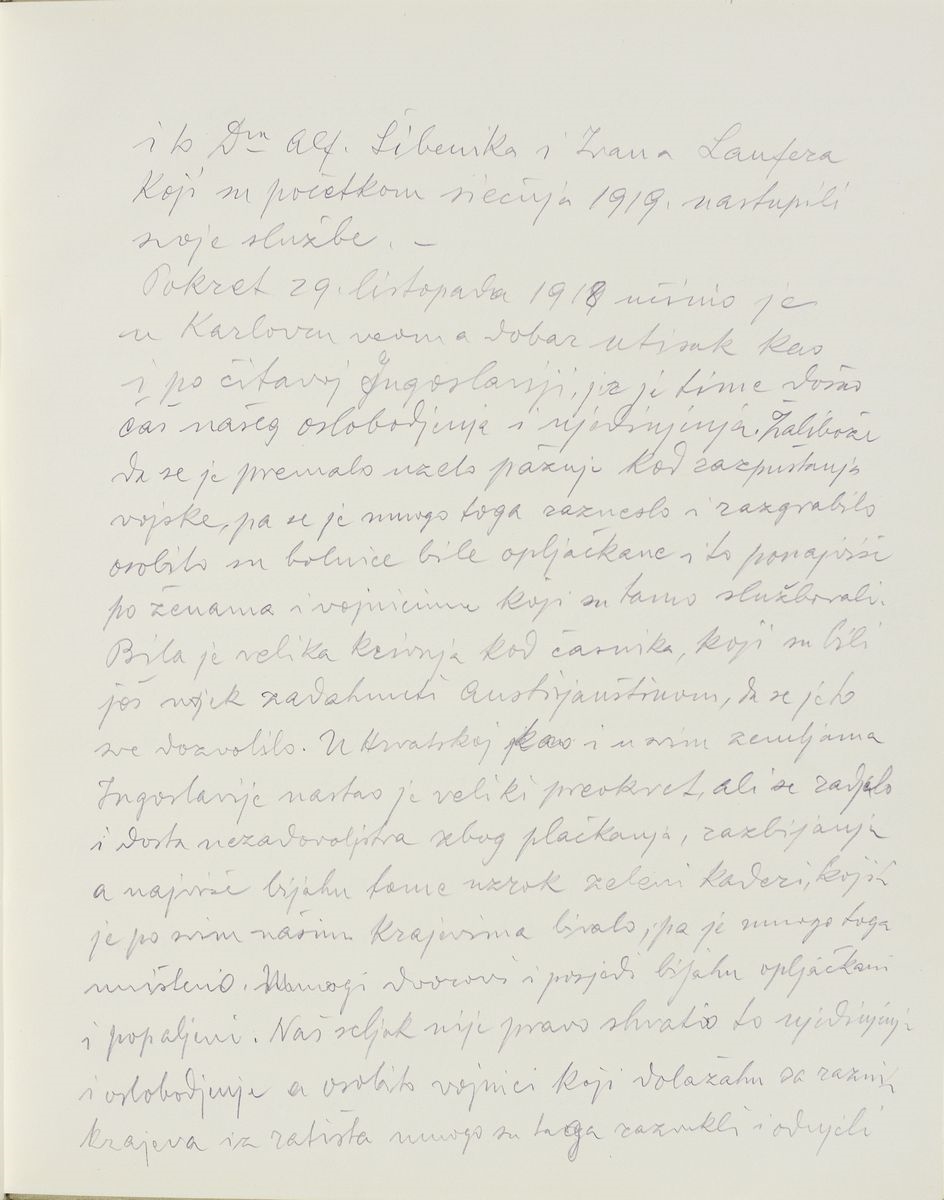 i to Dra Alf. Šibenika i Ivana Laufera
koji su početkom siečnja 1919. nastupili
svoje službe. –
Pokret 29. listopada 1918 učinio je
u Karlovcu veoma dobar utisak kao
i po čitavoj Jugoslaviji, jer je time došao
čas našeg oslobodjenja i ujedinjenja. Žalibože
da se je premalo uzelo pažnje kod razpuštanja
vojske, pa se je mnogo toga razneslo i razgrabilo
osobito su bolnice bile opljačkane i to ponajviše
po ženama i vojnicima koji su tamo službovali.
Bila je velika krivnja kod časnika, koji su bili
još uvjek zadahnuti Austrijanštinom, da se je to
sve dozvolilo. U Hrvatskoj kao i u svim zemljama
Jugoslavije nastao je veliki preokret, ali se radjalo
i dosta nezadovoljstva zbog plačkanja, razbijanja
a najviše bijahu tome uzrok zeleni kaderi, kojih
je po svim našim krajevima bivalo, pa je mnogo toga
uništeno. Mnogi dvorovi i posjedi bijahu opljačkani
i popaljeni. Naš seljak nije pravo shvatio to ujedinjenje
i oslobodjenje a osobito vojnici koji dolažahu sa raznih
krajeva iz ratišta mnogo su toga razvukli i odnjeli